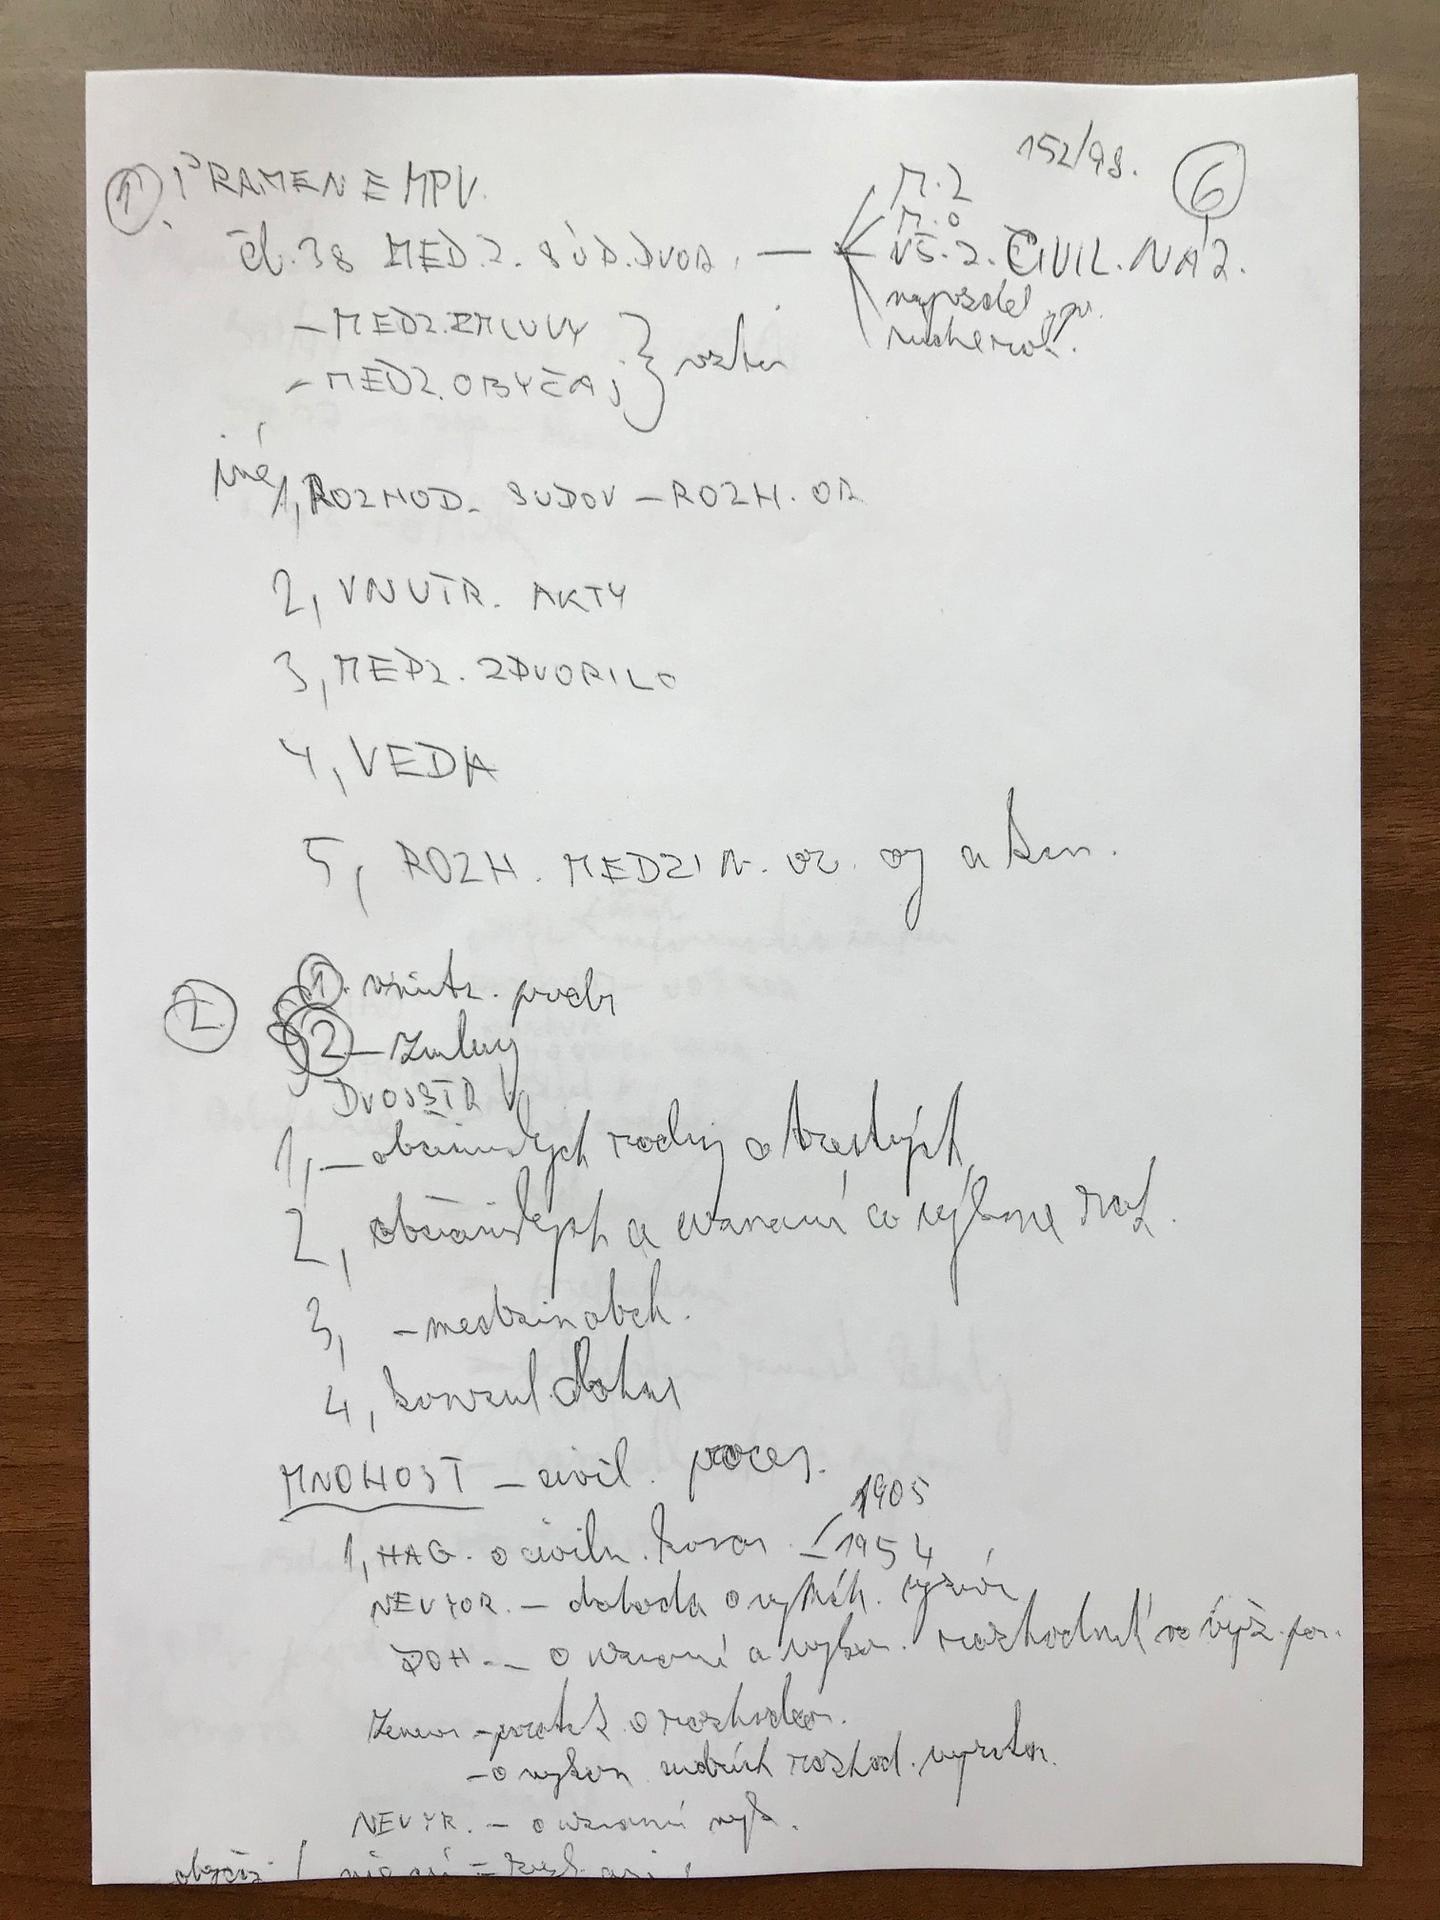 152/98.
6
1. PRAMENE MPV.
čl. 38 MED. Z. SÚD. DVOR. —
M. Z
M. O
VŠ. Z. CIVIL. NÁZ.
- MEDZ. ZMLUVY
- MEDZ. OBYČAJ
iné
1, ROZHOD. SUDOV - ROZH. OR
2, VNUTR. AKTY
3, MEDZ. ZDVORILO
4, VEDA
5, ROZH. MEDZIN. or. a
2.
1. vnútr. predp
2 - Zmluvy
DVOJSTR
1, - občianskych rodin a trestných
2, občianskych a uznaní a výkone roz.
3, - medzin obch.
4, konzul. dohov
MNOHOST - civil. proces.
1905
1, HAG. o civiln. konan. 1954
NEVYOR. - dohoda o vymáh. výživ
DOH. - o uznaní a výkon. rozhodnutí vo výž. po.
Ženev - protok. o rozhodcov.
- o výkon cudzích rozhod. výrokov.
NEVYR. - o uznaní výk.
obyčaj